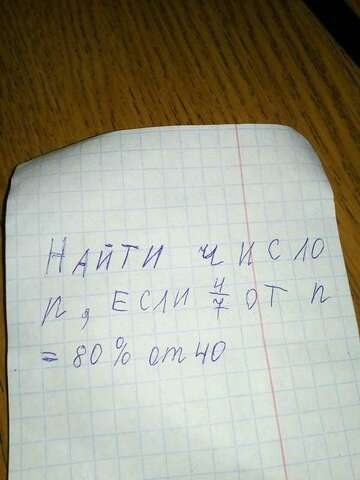 НАЙТИ ЧИСЛО
n, ЕСЛИ 4/7 ОТ n
= 80% от 40